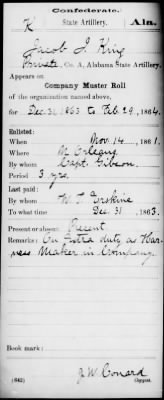 Confederate.
K State Artillery. Ala.
Jacob J. King
Private, Co. A, Alabama State Artillery.
Appears on
Company Muster Roll
of the organization named above,
for Dec. 31, 1863 to Feb. 29, 1864.
Enlisted:
When Nov. 14, 1861.
Where N. Orleans
By whom Capt. Gibson.
Period 3 yrs.
Last paid:
By whom W. T. Erskine
To what time Dec. 31, 1863.
Present or absent Present
Remarks: On extra duty as Har-
ness Maker in Company.
Book mark:
J. W. Conard
(642) Copyist.